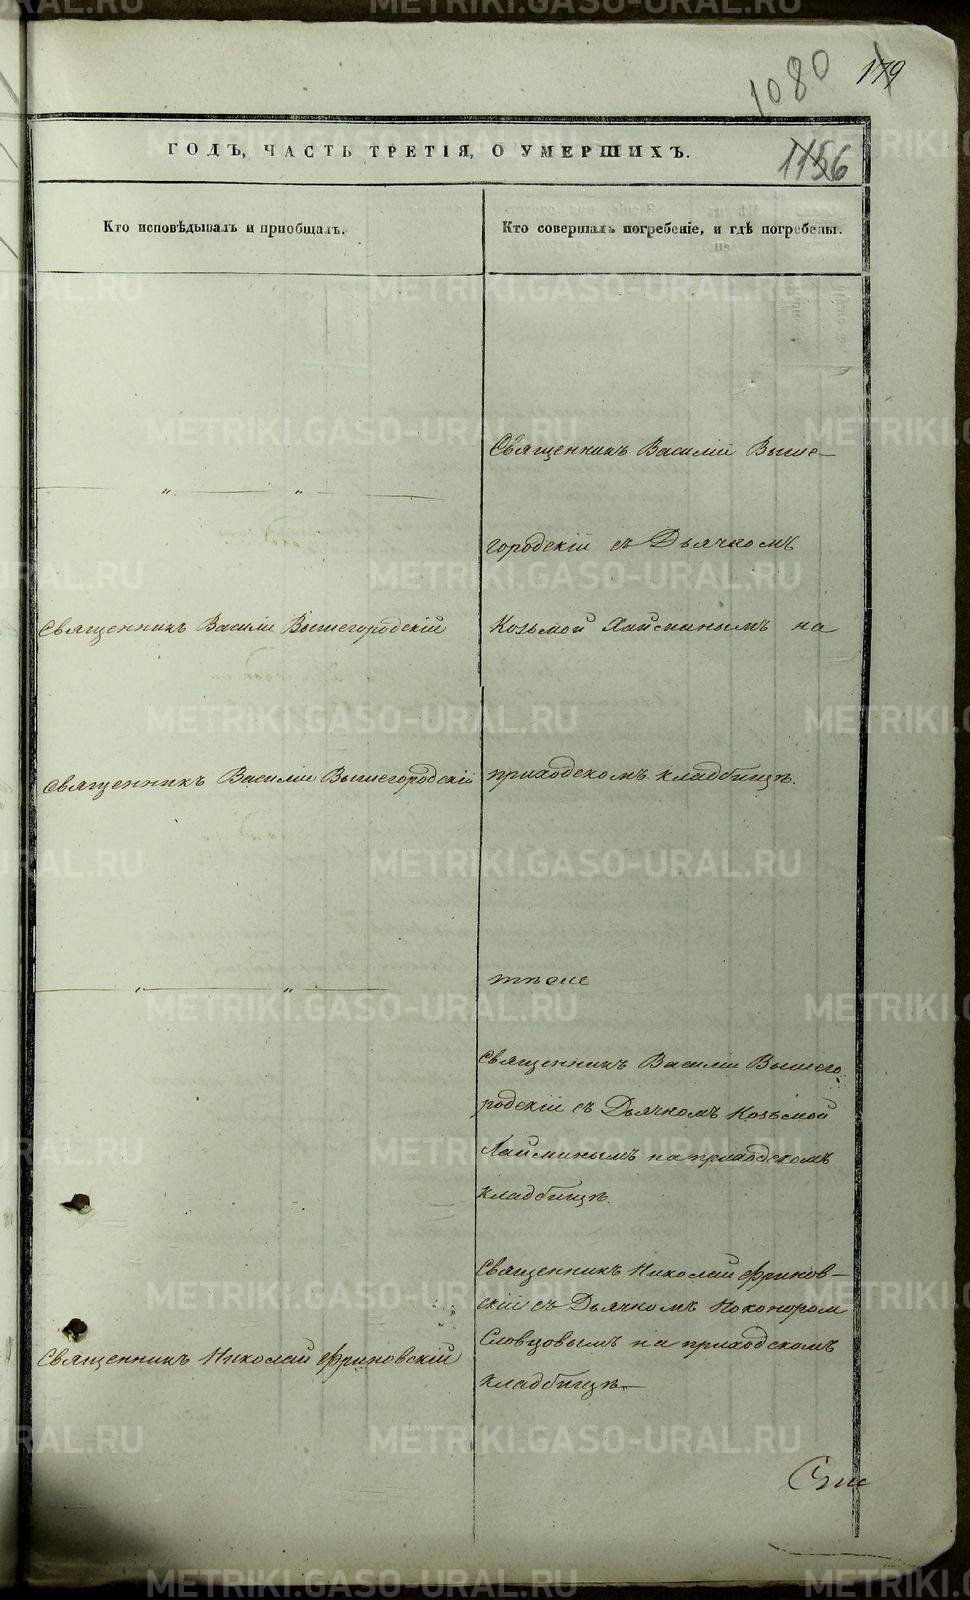 1080
179
ГОДЪ, ЧАСТЬ ТРЕТІЯ, О УМЕРШИХЪ.
1156
Кто исповѣдывалъ и пріобщалъ.
Кто совершалъ погребеніе, и гдѣ погребены.
Священникъ Василій Выше-
" "
городскій съ Дьячкомъ
Священникъ Василій Вышегородскій
Козьмой Хайминымъ на
Священникъ Василій Вышегородскій
приходскомъ кладбищѣ.
" "
тѣже
Священникъ Василій Вышего
родскій съ Дьячкомъ Козьмой
Хайминымъ на приходскомъ
кладбищѣ.
Священникъ Николай Фринов-
скій съ Дьячкомъ
Словцовымъ на приходскомъ
Священникъ Николай Фриновскій
кладбищѣ.
METRIKI.GASO-URAL.RU